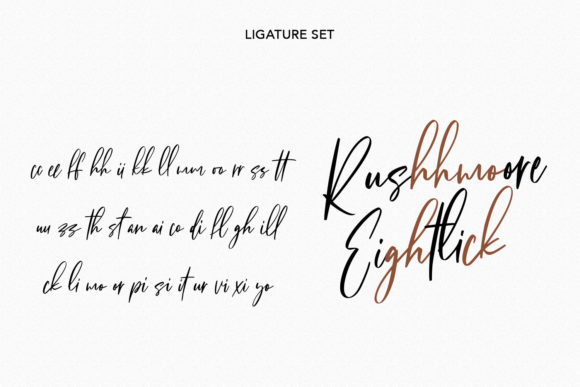 LIGATURE SET
cc ee ff hh ii kk ll mm oo rr ss tt
uu zz th st an ai co di fl gh ill
ck li mo or pi si it ur vi xi yo
Rushhmoore
Eightlick